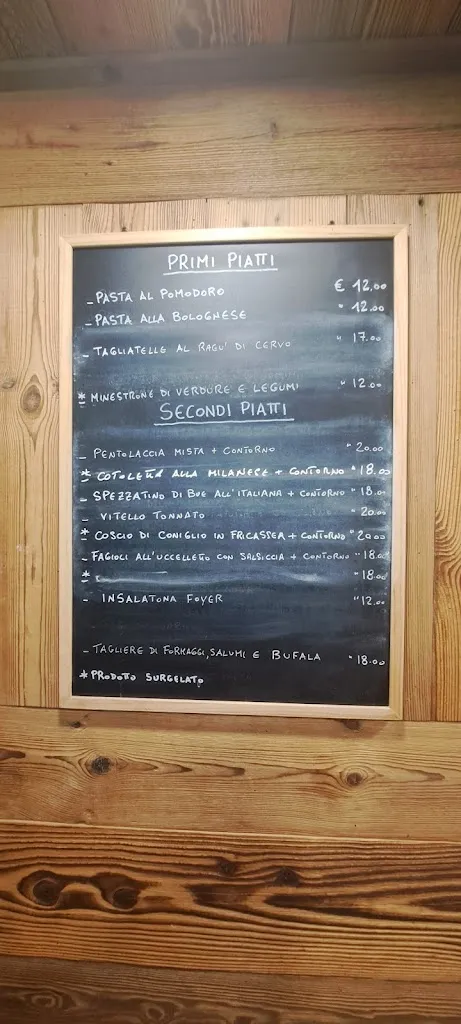 PRIMI PIATTI
- PASTA AL POMODORO € 12.00
- PASTA ALLA BOLOGNESE " 12.00
- TAGLIATELLE AL RAGU' DI CERVO " 17.00
* MINESTRONE DI VERDURE E LEGUMI " 12.00
SECONDI PIATTI
- PENTOLACCIA MISTA + CONTORNO " 20.00
* COTOLETTA ALLA MILANESE + CONTORNO " 18.00
- SPEZZATINO DI BUE ALL'ITALIANA + CONTORNO " 18.00
- VITELLO TONNATO " 20.00
* COSCIO DI CONIGLIO IN FRICASSEA + CONTORNO " 20.00
- FAGIOLI ALL'UCCELLETTO CON SALSICCIA + CONTORNO " 18.00
* " 18.00
- INSALATONA FOYER " 12.00
- TAGLIERE DI FORMAGGI, SALUMI E BUFALA " 18.00
* PRODOTTO SURGELATO